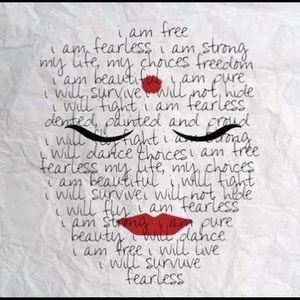 i am free
i am fearless i am strong
my life, my choices freedom
am beautiful i am pure
i will survive i will not hide
i will fight i am fearless
dented, painted and proud
i will fly fight i am strong
i will dance choices i am free
fearless my life, my choices
i am beautiful i will fight
i will survive i will not hide
i will fly i am fearless
i am strong i am pure
beauty i will dance
i am free i will live
i will survive
fearless